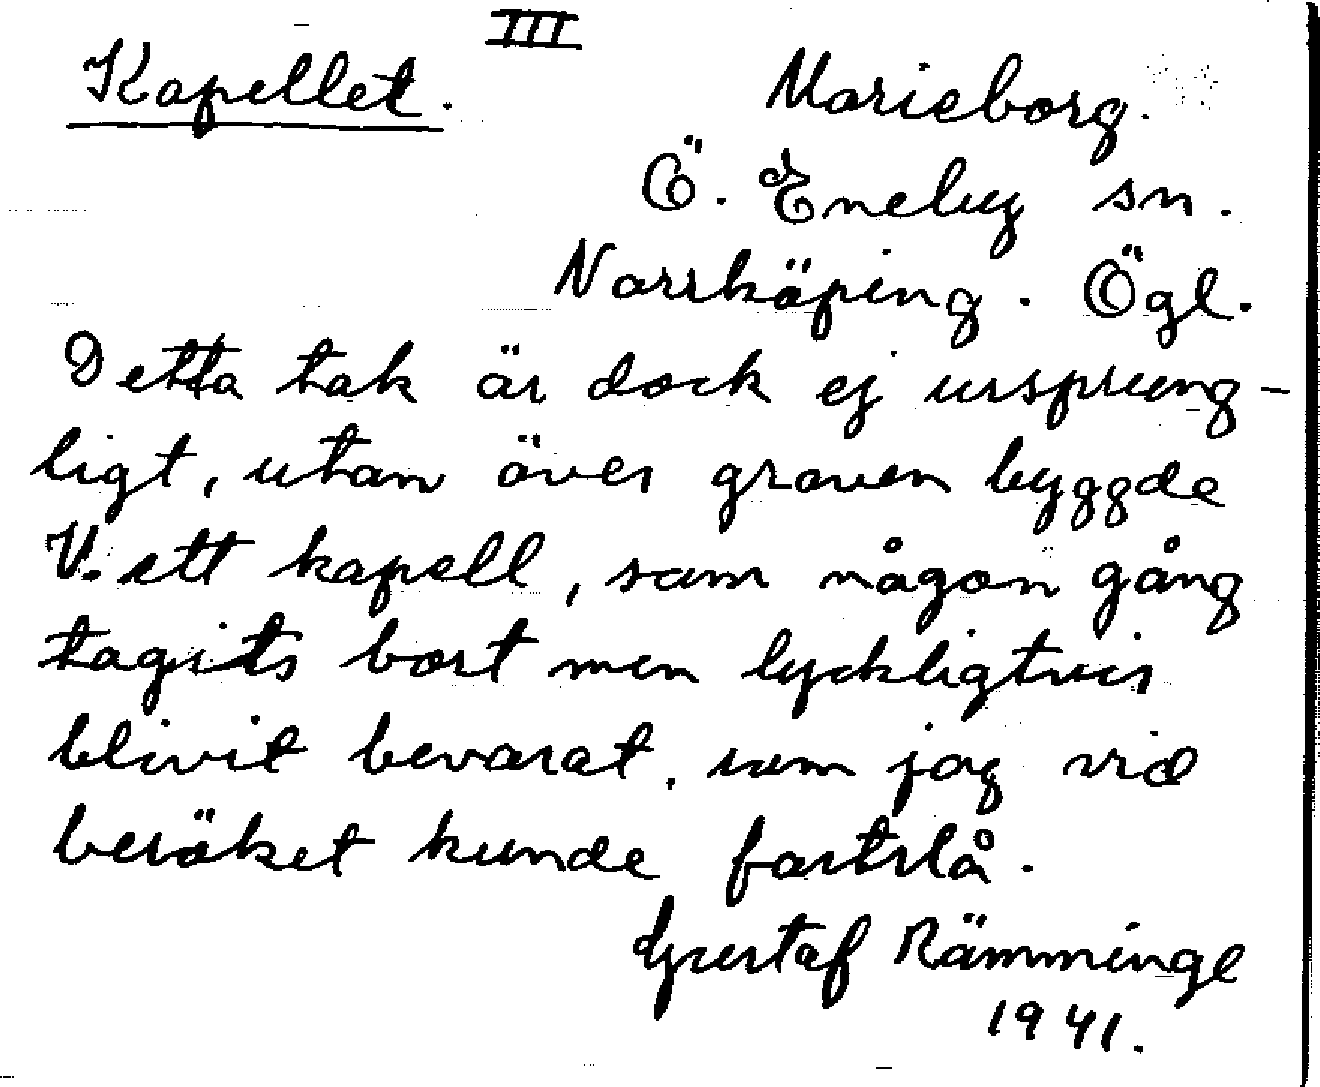 III
Kapellet. Marieborg.
Ö. Eneby sn.
Norrköping. Ögl.
Detta tak är dock ej ursprung-
ligt, utan över graven byggde
V. ett kapell, som någon gång
tagits bort men lyckligtvis
blivit bevarat, som jag vid
besöket kunde fastslå.
Gustaf Rämminge
1941.